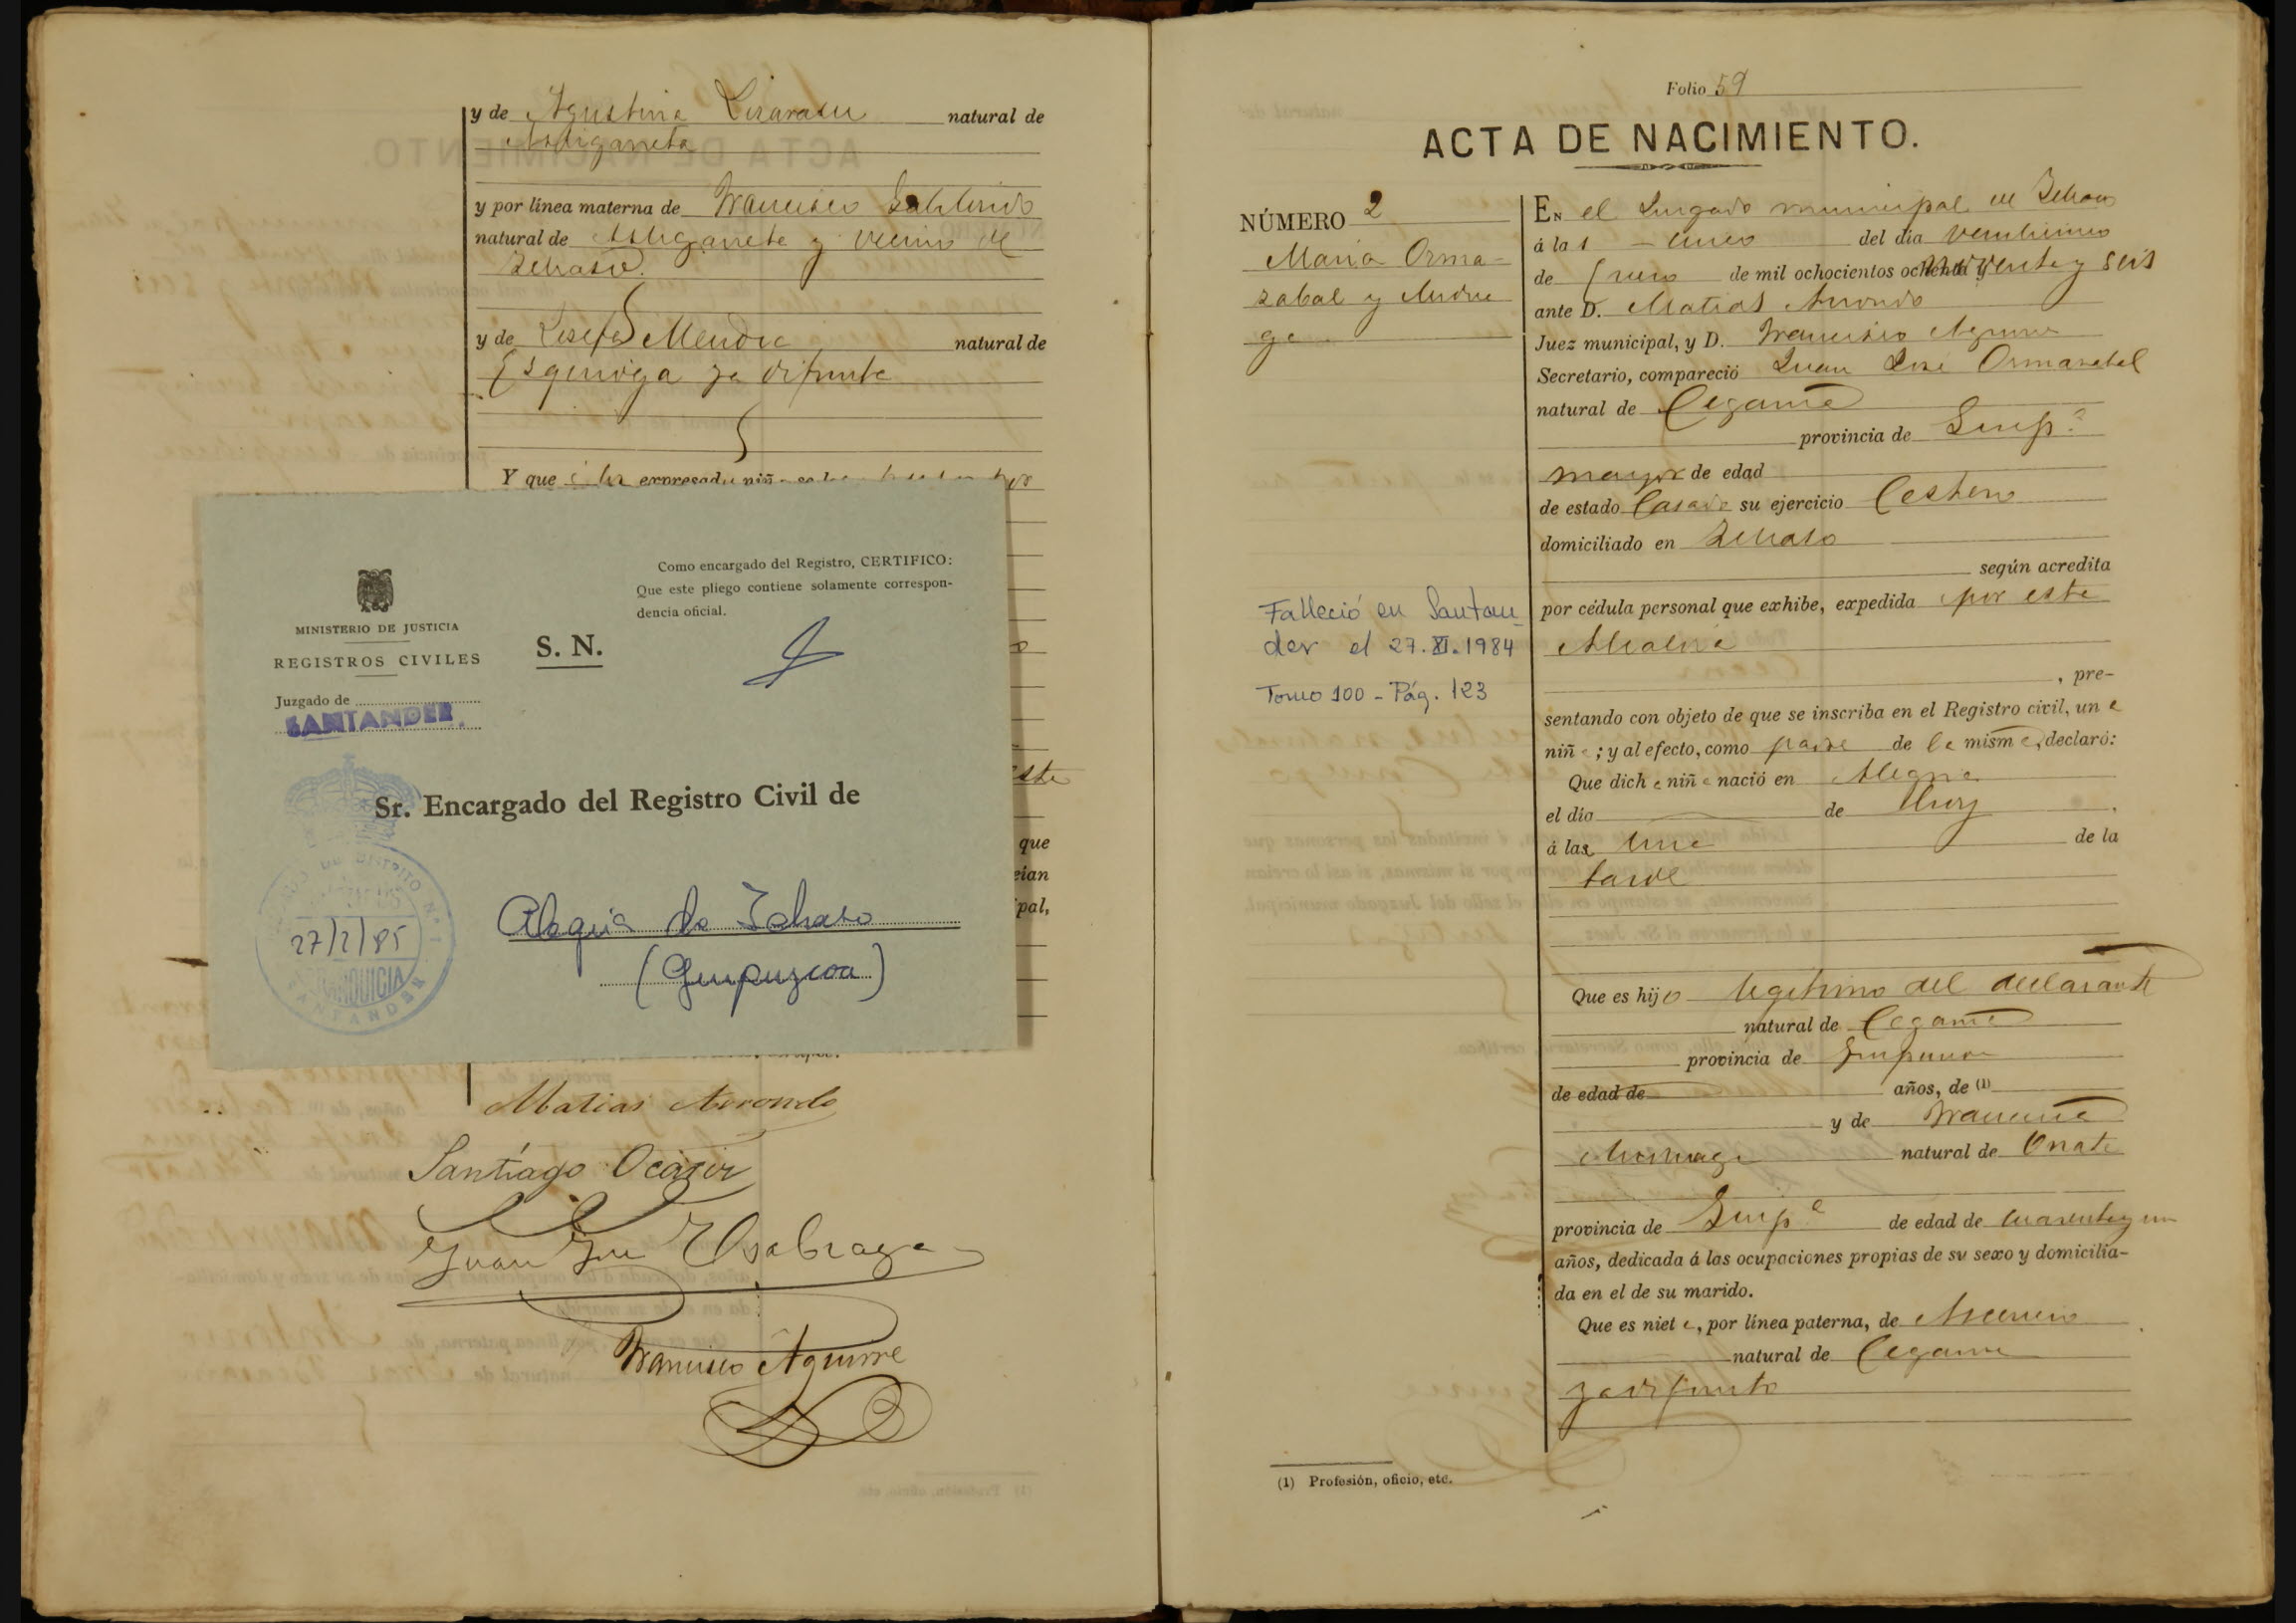 y de Agustina Lizarazu natural de
Astigarreta
y por línea materna de Francisco
natural de Astigarreta y vecino de
Zerain
y de Josefa Mendia natural de
Ezquioga ya difunta
Y que
MINISTERIO DE JUSTICIA
REGISTROS CIVILES
Juzgado de
SANTANDER.
S. N.
Como encargado del Registro, CERTIFICO:
Que este pliego contiene solamente correspon-
dencia oficial.
Sr. Encargado del Registro Civil de
27/2/85
SANTANDER
(Guipuzcoa)
que
pal,
Matias Arrondo
Santiago
Juan José
Francisco Aguirre
Folio 59
ACTA DE NACIMIENTO.
NÚMERO 2
Maria Orma-
zabal y
Falleció en Santan-
der el 27.XI.1984
Tomo 100 - Pág. 123
EN el Juzgado municipal de
á las cinco del dia veinticinco
de Enero de mil ochocientos ochenta y noventa y seis
ante D. Matias Arrondo
Juez municipal, y D. Francisco Aguirre
Secretario, compareció Juan José Ormazabal
natural de Cegama
provincia de Guip.ª
mayor de edad
de estado Casado su ejercicio Cestero
domiciliado en
según acredita
por cédula personal que exhibe, expedida por esta
Alcaldia
, pre-
sentando con objeto de que se inscriba en el Registro civil, una
niña; y al efecto, como padre de la misma, declaró:
Que dicha niña nació en Alegria
el día de Hoy
á las una de la
tarde
Que es hijo legitimo del declarante
natural de Cegama
provincia de Guipuzcoa
de edad de años, de (1)
y de Francisca
natural de Oñate
provincia de Guip.ª de edad de cuarenta y un
años, dedicada á las ocupaciones propias de su sexo y domicilia-
da en el de su marido.
Que es nieta, por línea paterna, de Ascencio
natural de Cegama
ya difunto
(1) Profesión, oficio, etc.